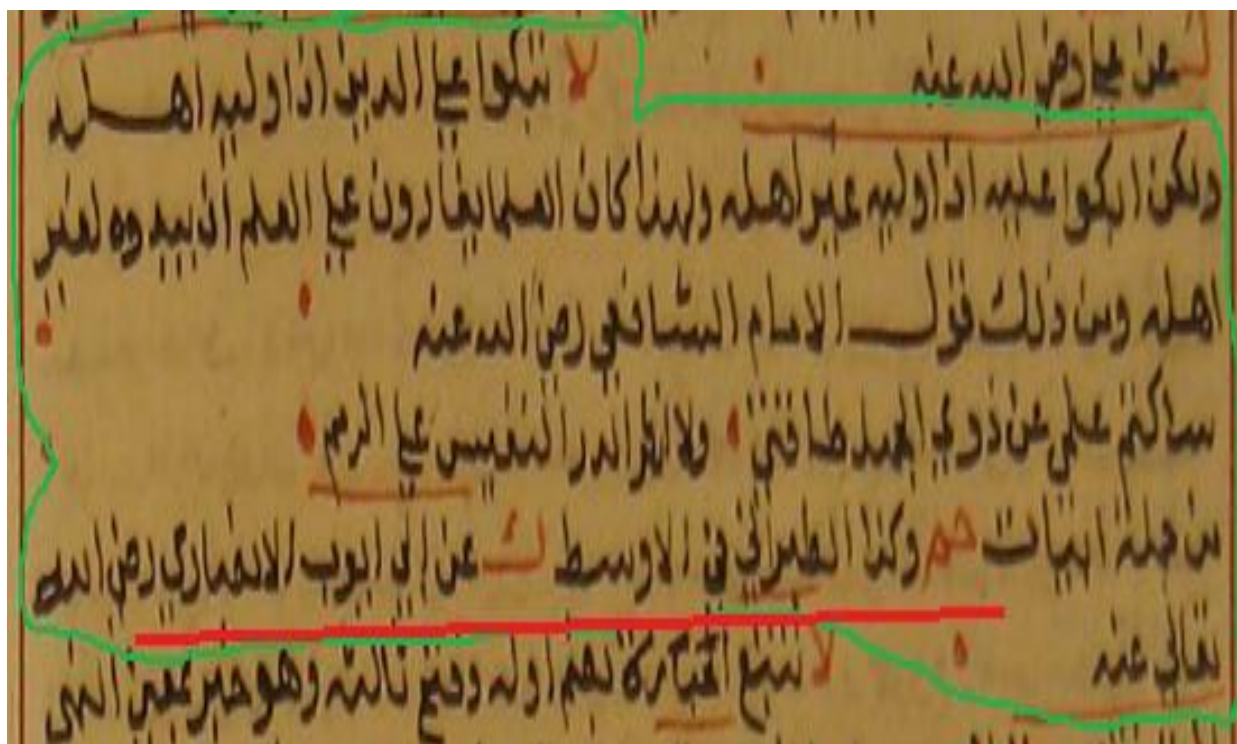 عن علي رضي الله عنه لا تبكوا علي الدين اذا وليه اهله
ولكن ابكوا عليه اذا وليه غير اهله ولهذا كان العلما يغارون علي العلم ان يبدوه لغير
اهله ومن ذلك قول الامام الشافعي رضي الله عنه
ساكتم علمي عن ذوي الجهل طاقتي ولا انثر الدر النفيس علي
من جملة ابيات حم وكذا الطبراني في الاوسط ك عن ابي ايوب الانصاري رضي الله
تعالي عنه لا تتبع الجنازة بضم اوله وفتح ثالثه وهو خبر بمعني النهي